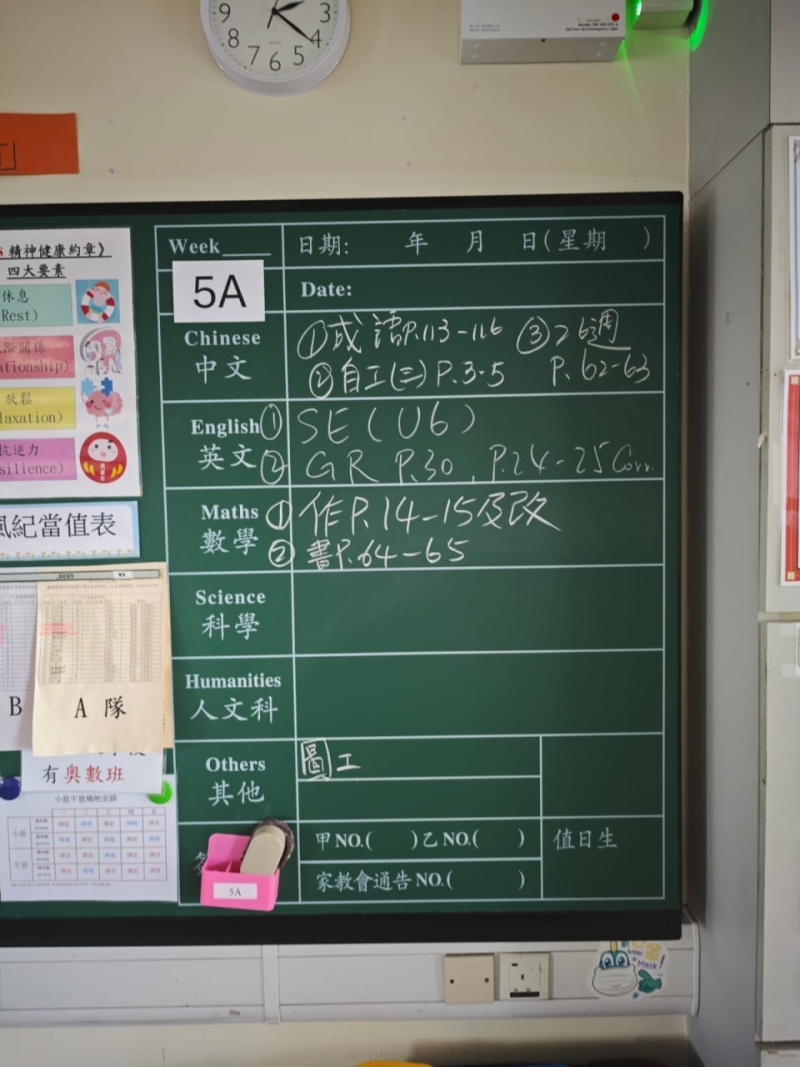 9 3
8 7 6 5 4
精神健康約章》
四大要素
休息
Rest)
關係
ationship)
放鬆
laxation)
抗逆力
silience)
風紀當值表
B
A 隊
有奧數班
小息午息場地安排
Week____
日期: 年 月 日(星期 )
5A
Date:
Chinese
中文
①成語P.113-116 ③26週
②自工(三)P.3-5 P.62-63
English
英文
① SE (U6)
② GR P.30, P.24-25 Corr.
Maths
數學
① 作P.14-15及改
② 書P.64-65
Science
科學
Humanities
人文科
Others
其他
圖工
甲NO.( )乙NO.( )
值日生
家教會通告NO.( )
5A